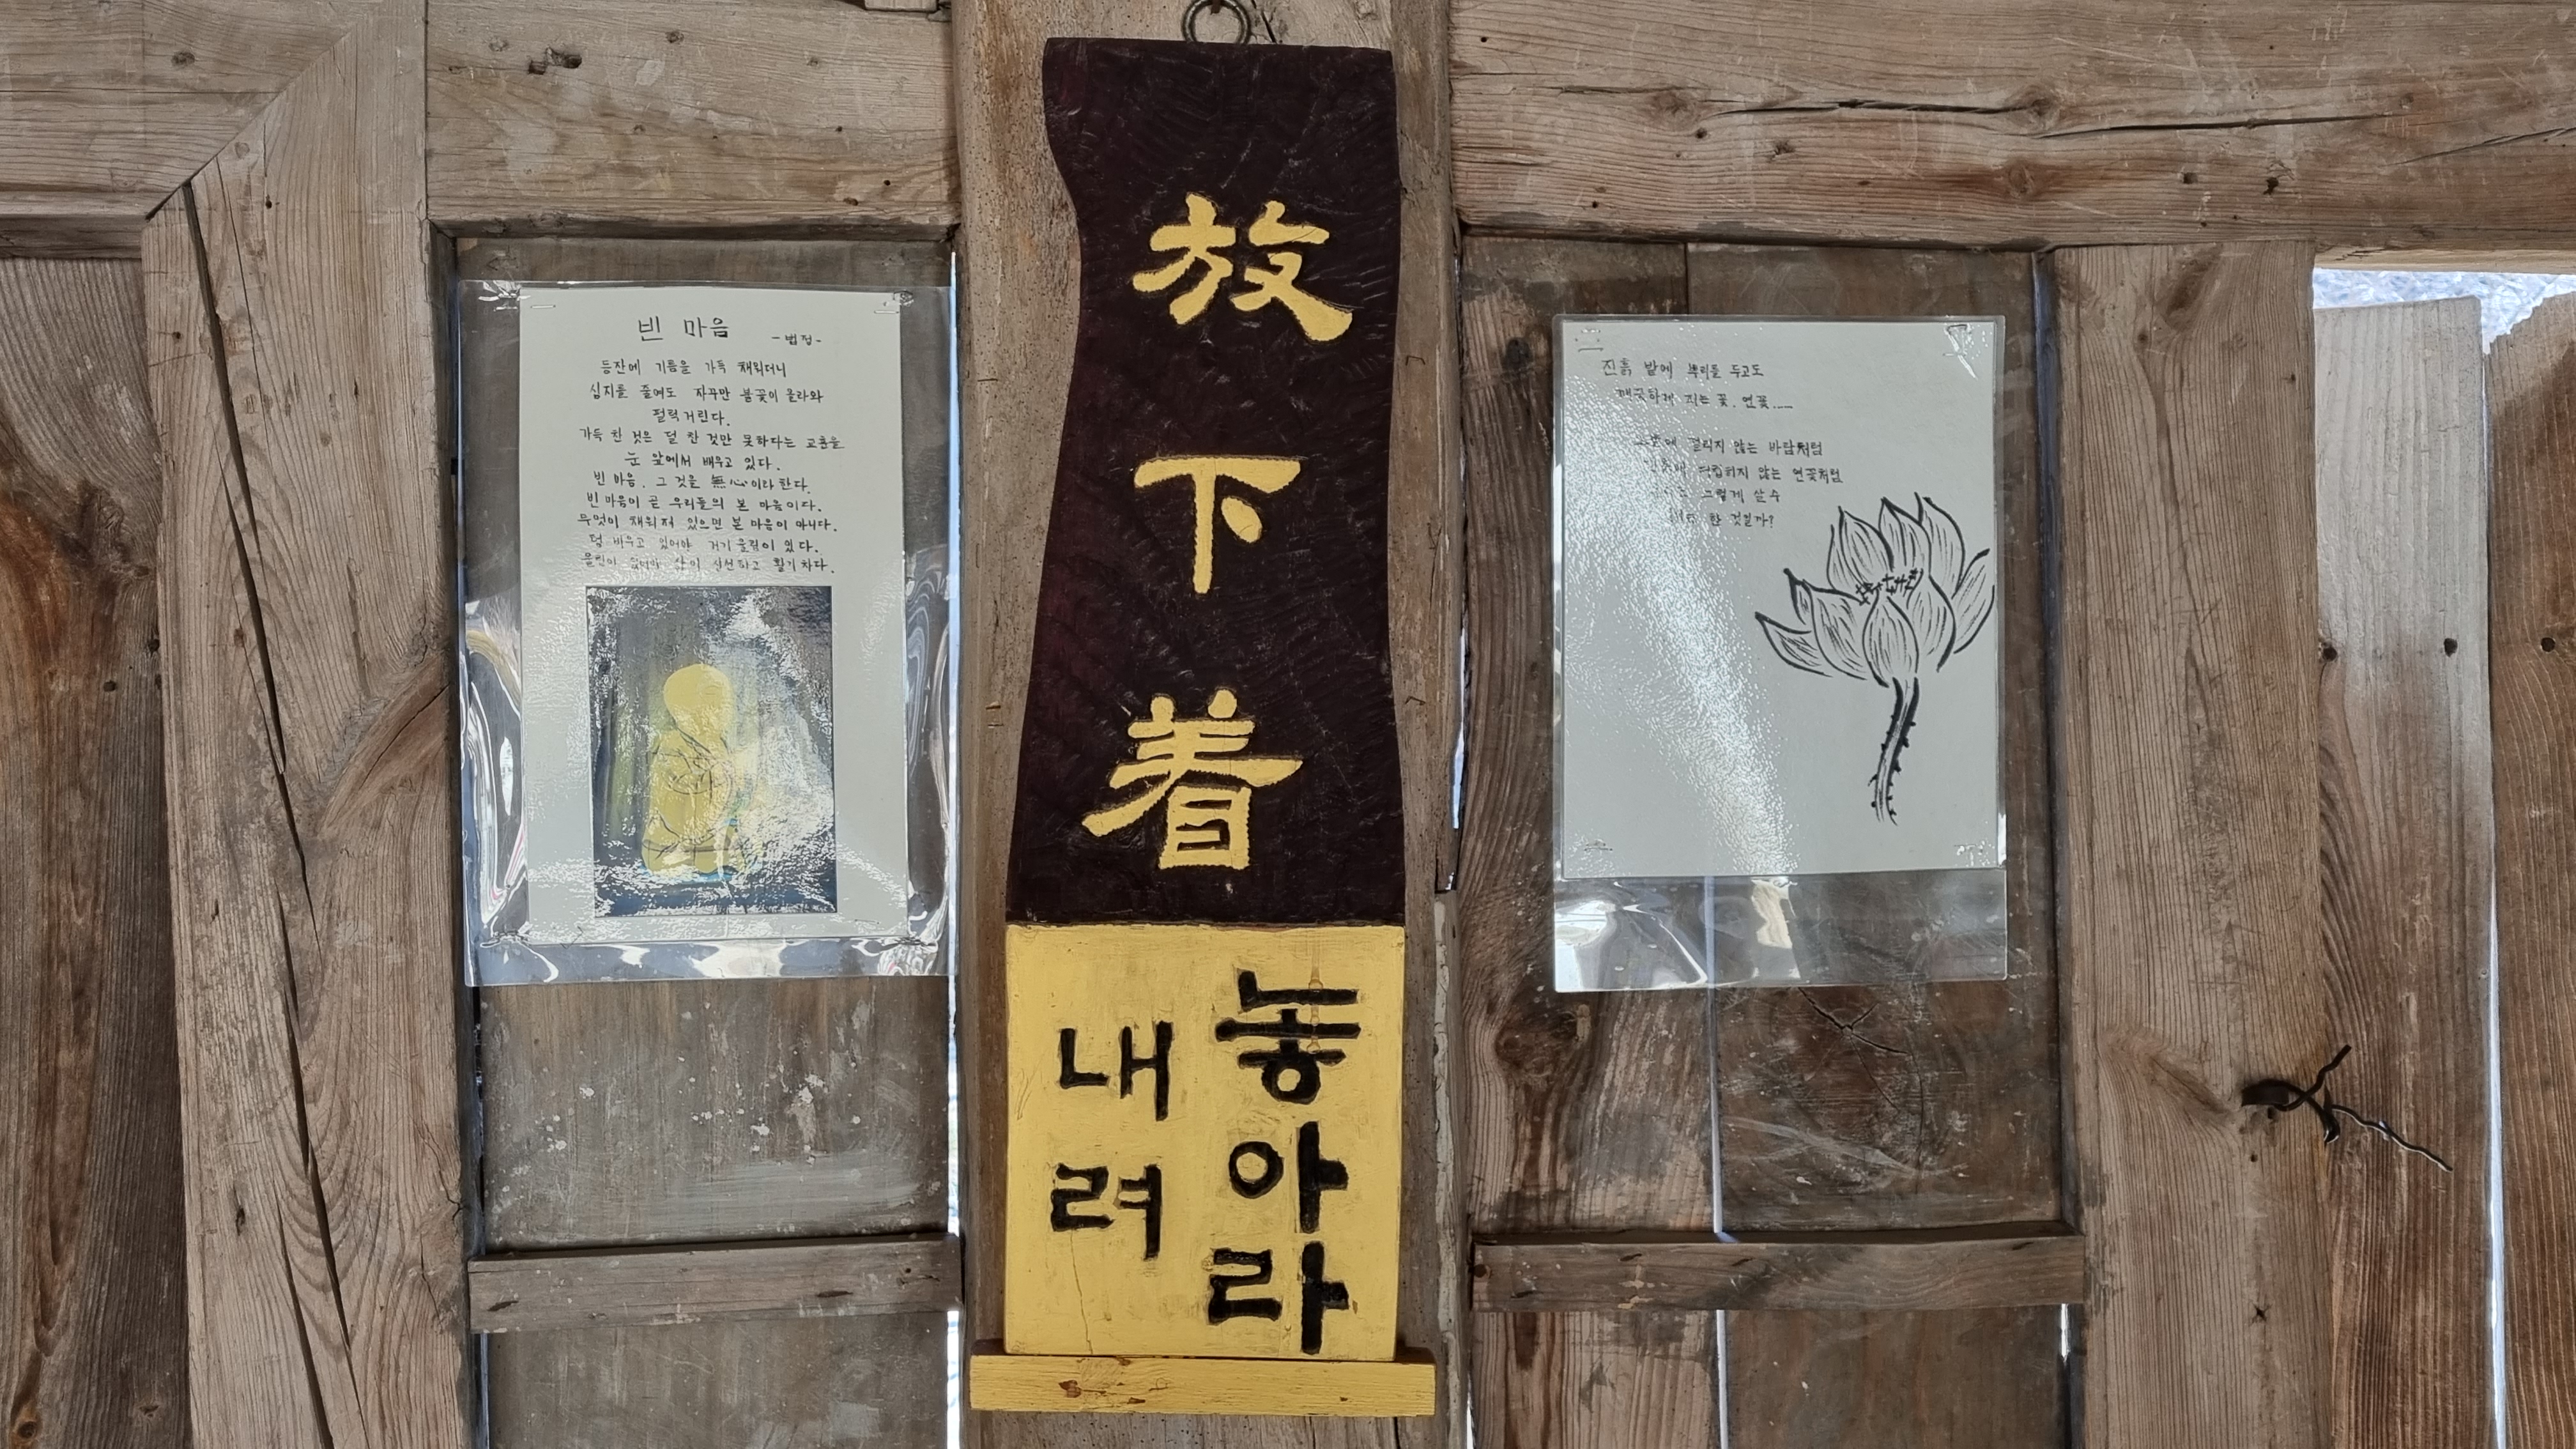 빈 마음
-법정-
등잔에 기름을 가득 채웠더니
심지를 줄여도 자꾸만 불꽃이 올라와
펄럭거린다.
가득 찬 것은 덜 찬 것만 못하다는 교훈을
눈 앞에서 배우고 있다.
빈 마음, 그 것을 無心이라 한다.
빈 마음이 곧 우리들의 본 마음이다.
무엇이 채워져 있으면 본 마음이 아니다.
텅 비우고 있어야 거기 울림이 있다.
울림이 있어야 삶이 신선하고 활기차다.
放
下
着
내려
놓아라
진흙 밭에 뿌리를 두고도
깨끗하게 지는 꽃. 연꽃......
걸리지 않는 바람처럼
않는 연꽃처럼
그렇게 살 수
한 것일까?